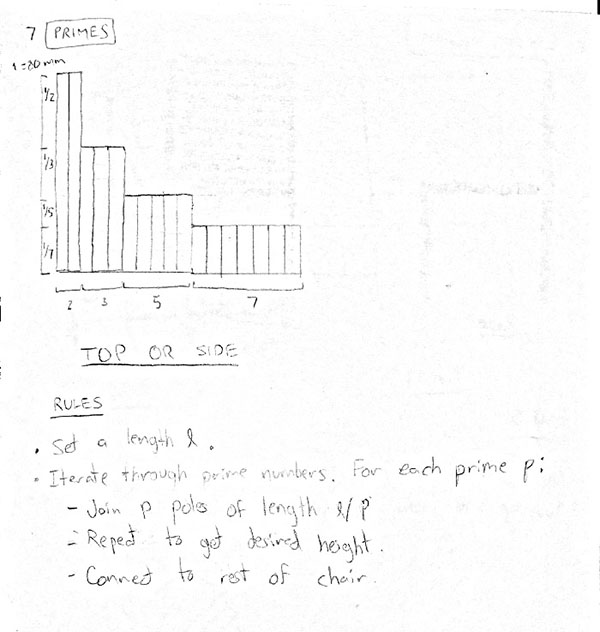 7 PRIMES
1=80 mm
1/2
1/3
1/5
1/7
2 3 5 7
TOP OR SIDE
RULES
• Set a length l.
• Iterate through prime numbers. For each prime p:
- Join p poles of length l/p
- Repeat to get desired height.
- Connect to rest of chair.